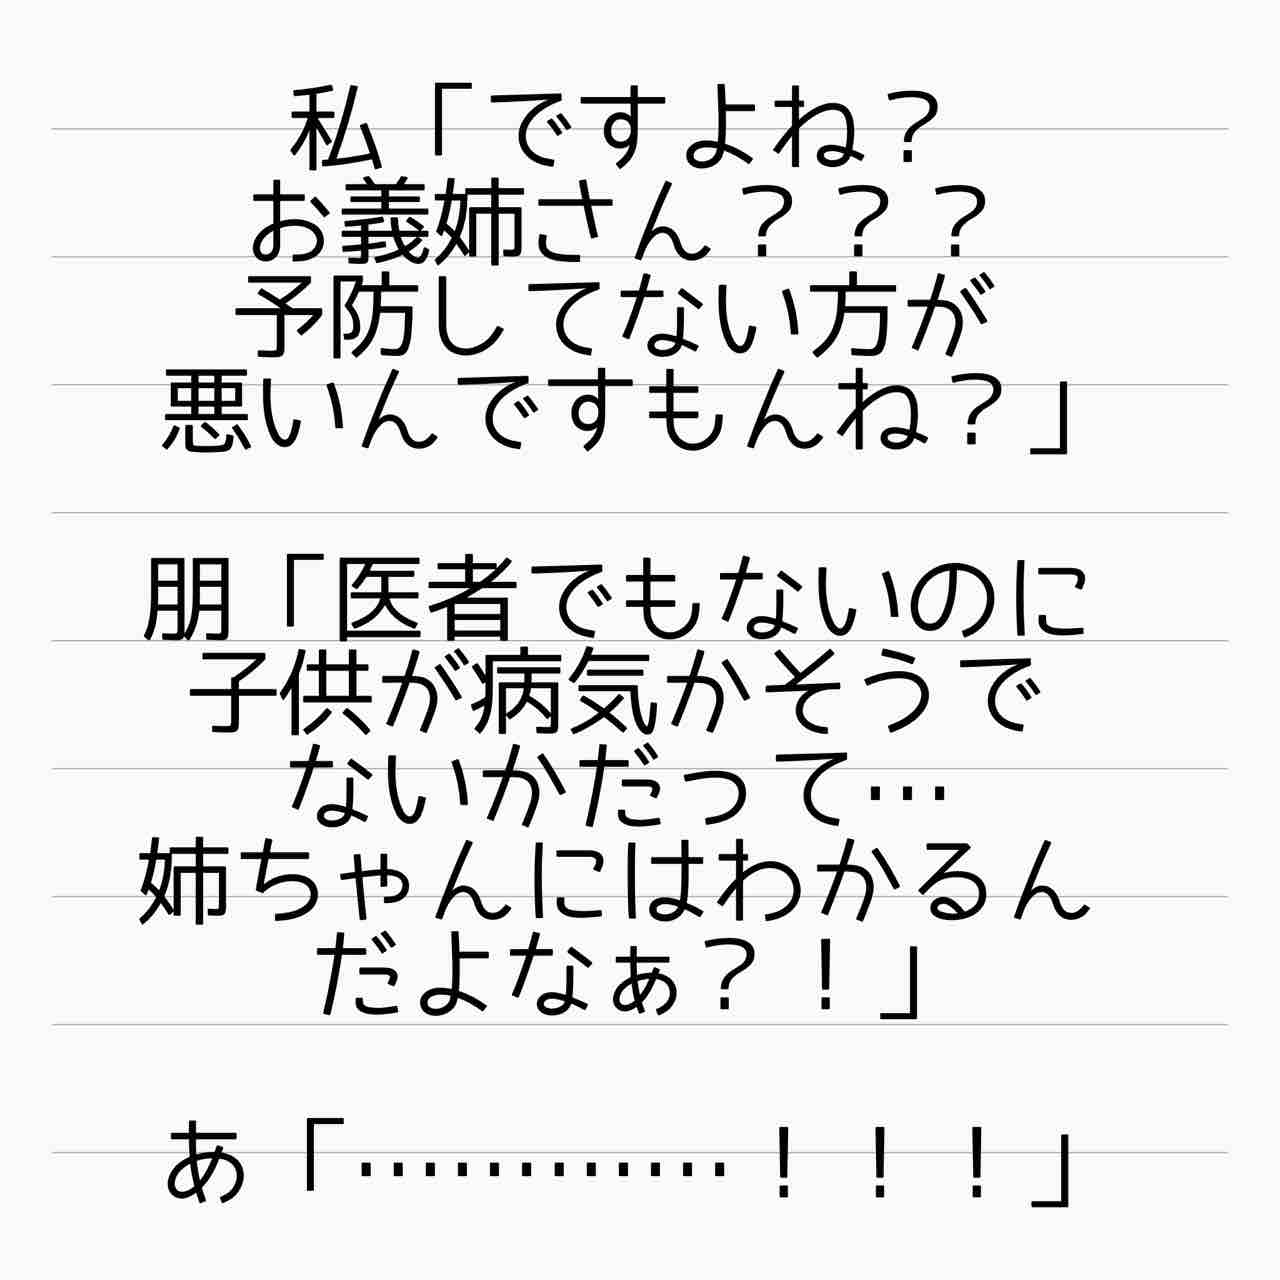 私「ですよね？
お義姉さん？？？
予防してない方が
悪いんですもんね？」
朋「医者でもないのに
子供が病気かそうで
ないかだって…
姉ちゃんにはわかるん
だよなぁ？！」
あ「…………！！！」